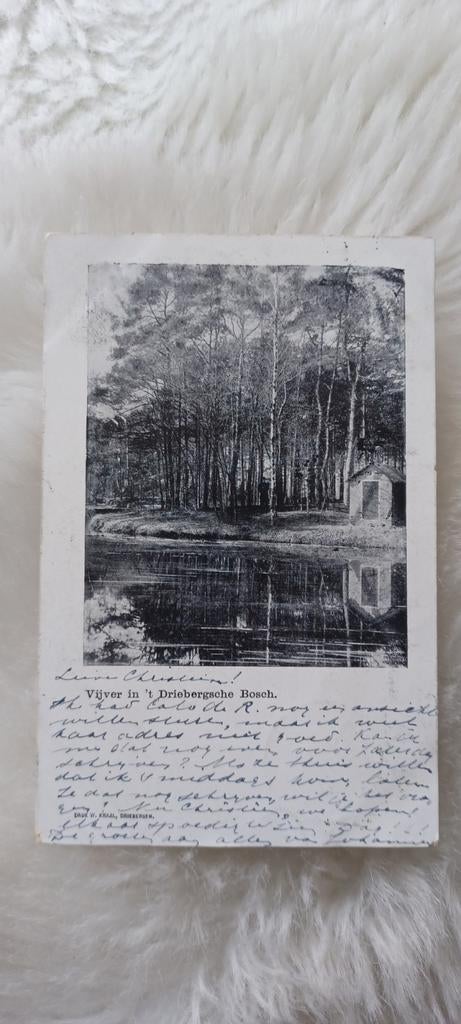 Lieve Christien!
Vijver in 't Driebergsche Bosch.
Ik had Cato de R. nog een ansicht
willen sturen, maar ik weet
haar adres niet goed. Kan je
me dat nog even voor Zaterdag
schrijven? Als ze thuis willen
dat ik 's middags kom, laten
ze dat nog schrijven, wil je het
Nu Christien, we hopen
elkaar spoedig te zien. Dag!!!
De groeten aan allen van Johanna
DRUK W. KRAAL, DRIEBERGEN.